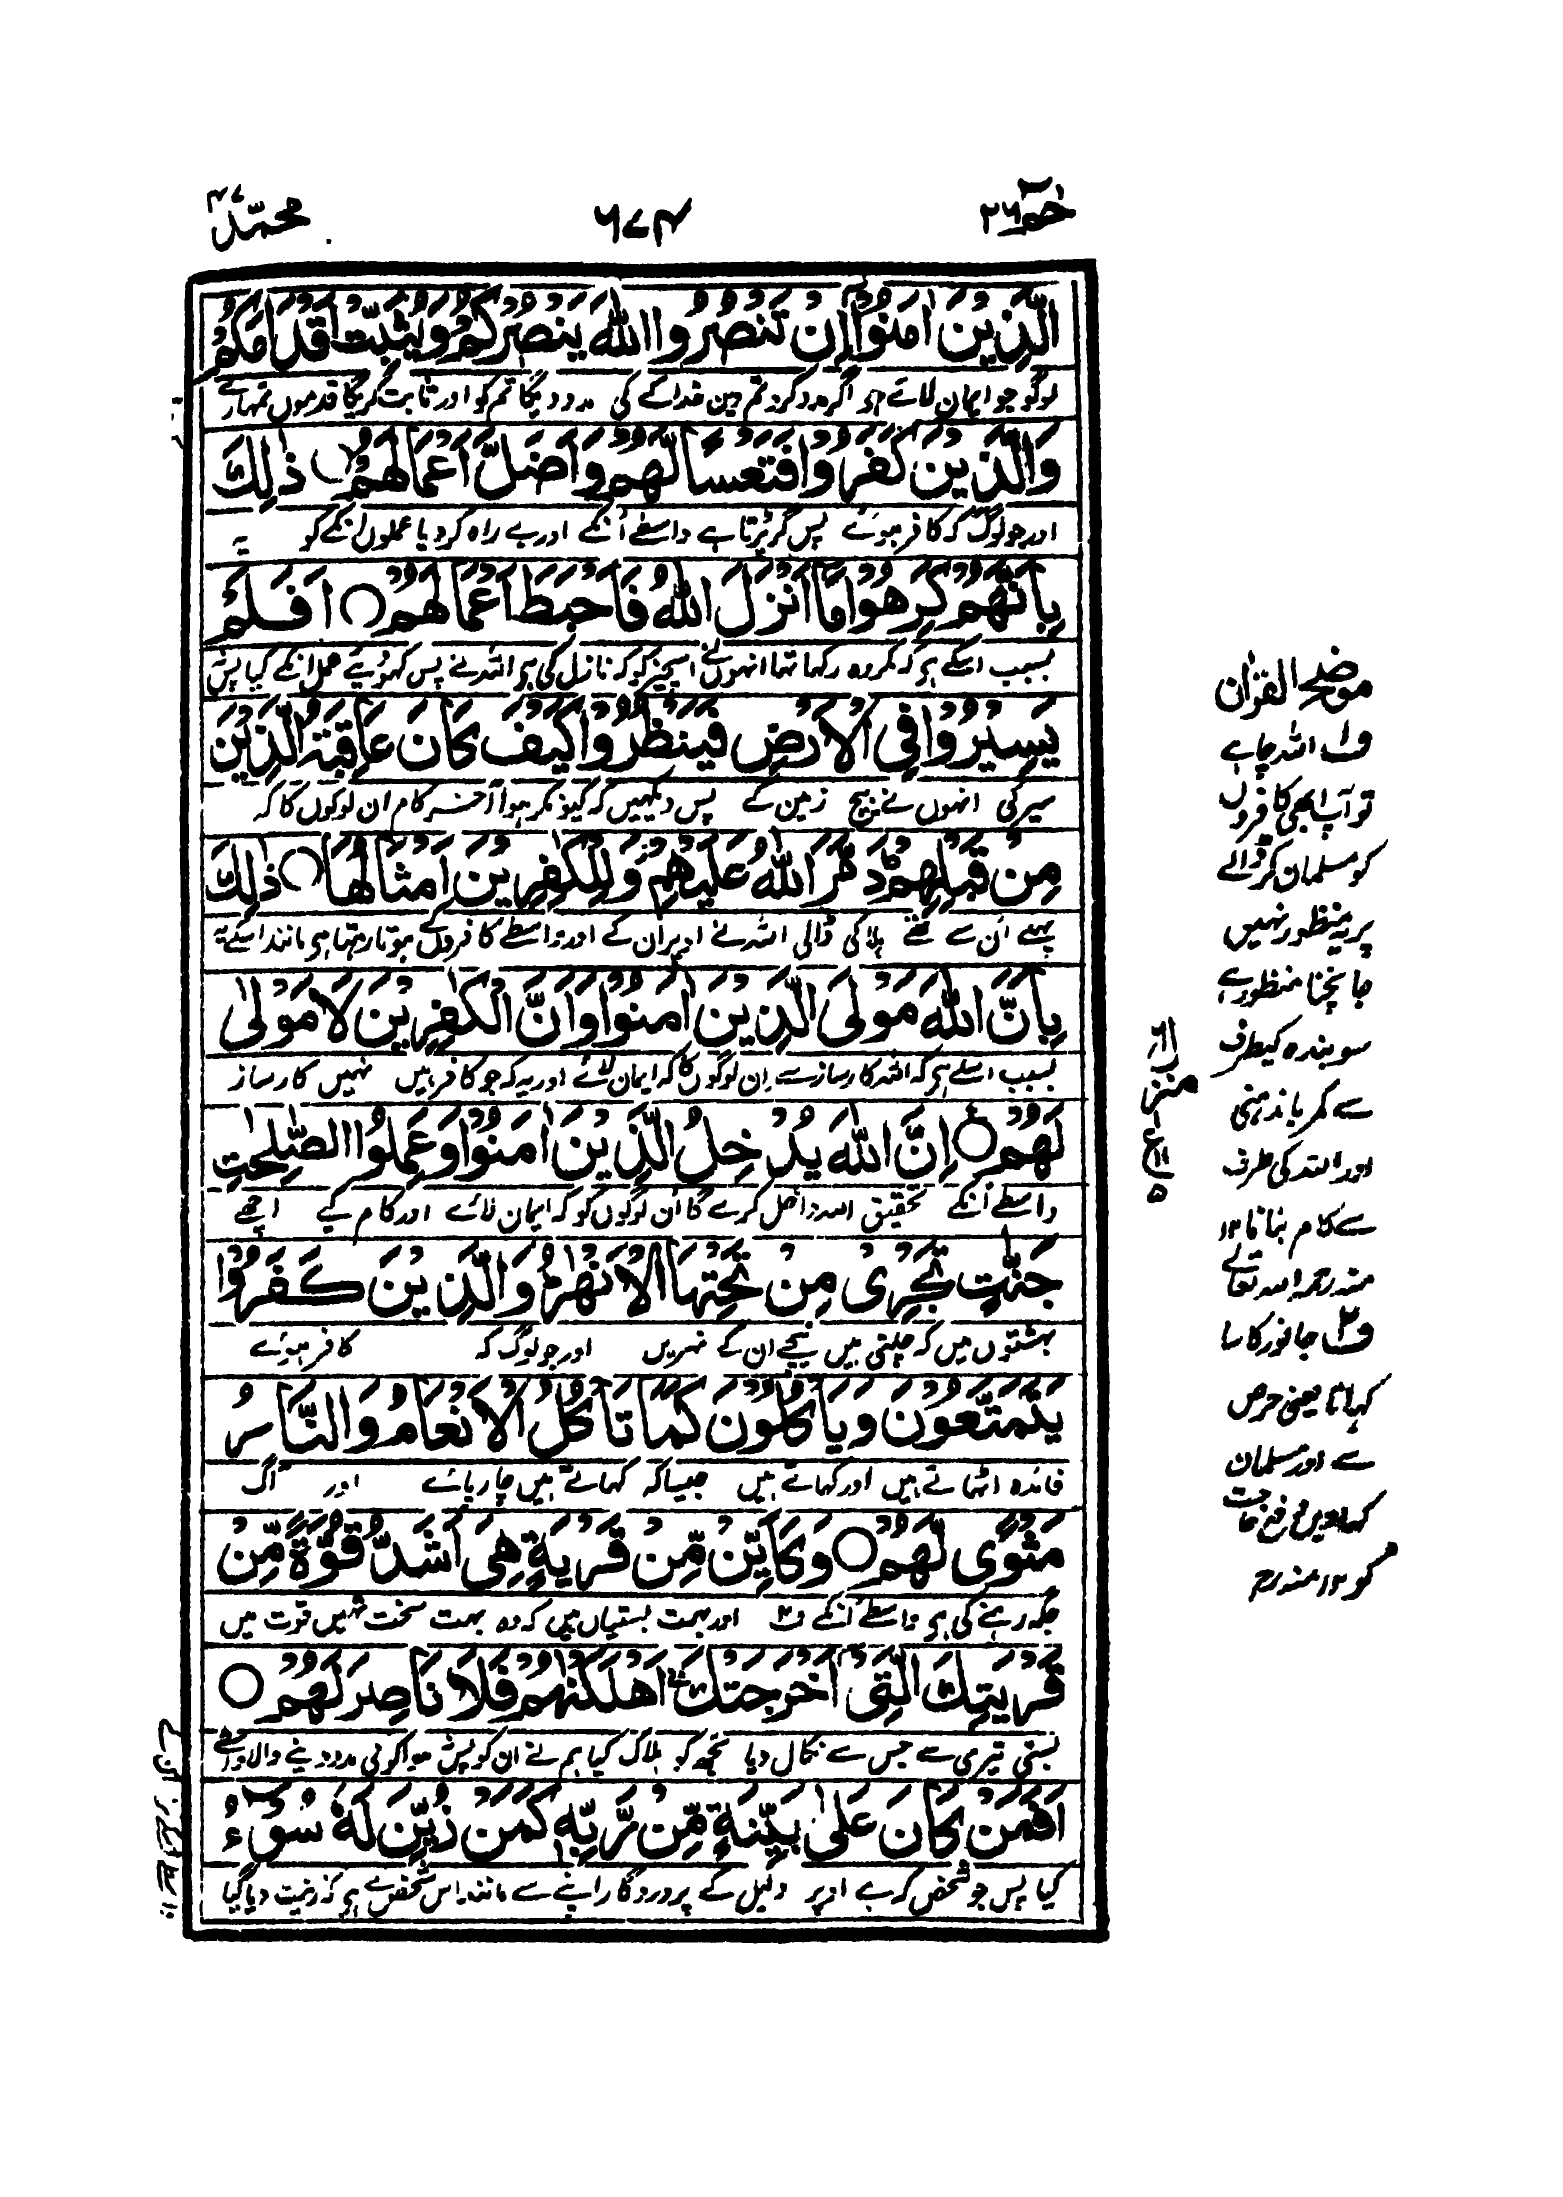 حٰمٓ ۲۶
۶۷۴
محمّد ۴۷
الَّذِيْنَ اٰمَنُوْٓا اِنْ تَنْصُرُوا اللّٰهَ يَنْصُرْكُمْ وَيُثَبِّتْ اَقْدَامَكُمْ
لوگو جو ایمان لائے ہو اگر مدد کرو تم دین خدا کے کی مدد دیگا تم کو اور ثابت کریگا قدموں تمہارے
وَالَّذِيْنَ كَفَرُوْا فَتَعْسًا لَّهُمْ وَاَضَلَّ اَعْمَالَهُمْ ○ ذٰلِكَ
اور جو لوگ کہ کافر ہوئے پس گر پڑتا ہے واسطے اُنکے اور بے راہ کر دیا عملوں انکے کو یہ
بِاَنَّهُمْ كَرِهُوْا مَآ اَنْزَلَ اللّٰهُ فَاَحْبَطَ اَعْمَالَهُمْ ○ اَفَلَمْ
بسبب اسکے ہے کہ مکروہ رکہا تہا انہوں نے اسچیز کو کہ نازل کی ہے اللہ نے پس کہو دیے عمل انکے کیا پس
يَسِيْرُوْا فِي الْاَرْضِ فَيَنْظُرُوْا كَيْفَ كَانَ عَاقِبَةُ الَّذِيْنَ
سیر کی انہوں نے بیچ زمین کے پس دیکہیں کہ کیونکر ہوا آخر کام ان لوگوں کا کہ
مِنْ قَبْلِهِمْ ط دَمَّرَ اللّٰهُ عَلَيْهِمْ وَلِلْكٰفِرِيْنَ اَمْثَالُهَا ○ ذٰلِكَ
پہلے اُن سے تھے ہلاکی ڈالی اللہ نے اوپر ان کے اور واسطے کافروں کے ہوتا رہتا ہے مانند اسکے یہ
بِاَنَّ اللّٰهَ مَوْلَى الَّذِيْنَ اٰمَنُوْا وَاَنَّ الْكٰفِرِيْنَ لَا مَوْلٰى
بسبب اسکے ہے کہ اللہ کارساز ہے اِن لوگوں کا کہ ایمان لائے اور یہ کہ جو کافر ہیں نہیں کارساز
لَهُمْ ○ اِنَّ اللّٰهَ يُدْخِلُ الَّذِيْنَ اٰمَنُوْا وَعَمِلُوا الصّٰلِحٰتِ
واسطے اُنکے تحقیق اللہ داخل کرے گا اُن لوگوں کو کہ ایمان لائے اور کام کیے اچھے
جَنّٰتٍ تَجْرِيْ مِنْ تَحْتِهَا الْاَنْهٰرُ وَالَّذِيْنَ كَفَرُوْا
بہشتوں میں کہ چلتی ہیں نیچے ان کے نہریں اور جو لوگ کہ کافر ہوئے
يَتَمَتَّعُوْنَ وَيَاْكُلُوْنَ كَمَا تَاْكُلُ الْاَنْعَامُ وَالنَّارُ
فائدہ اٹہاتے ہیں اور کہاتے ہیں جیسا کہ کہاتے ہیں چارپائے اور آگ
مَثْوًى لَّهُمْ ○ وَكَاَيِّنْ مِّنْ قَرْيَةٍ هِيَ اَشَدُّ قُوَّةً مِّنْ
جگہ رہنے کی ہے واسطے اُنکے ف۲ اور بہت بستیاں ہیں کہ وہ بہت سخت تہیں قوت میں
قَرْيَتِكَ الَّتِيْٓ اَخْرَجَتْكَ اَهْلَكْنٰهُمْ فَلَا نَاصِرَ لَهُمْ ○
بستی تیری سے جس نے نکال دیا تجھ کو ہلاک کیا ہم نے ان کو پس نہ ہوا کوئی مدد دینے والا واسطے
اَفَمَنْ كَانَ عَلٰى بَيِّنَةٍ مِّنْ رَّبِّهٖ كَمَنْ زُيِّنَ لَهٗ سُوْٓءُ
کیا پس جو شخص کہ ہے اوپر دلیل کے پروردگار اپنے سے مانند اس شخص کے ہے کہ زینت دیا گیا
موضح القرآن
ف۱ اللہ چاہے
تو آپ ہی کافروں
کو مسلمان کر ڈالے
پر یہ منظور نہیں
جانچنا منظور ہے
سو بندہ کیطرف
سے کمر باندہنی
اور اللہ کی طرف
سے کام بنانا ۱۲
منہ رحمہ اللہ تعالے
ف۲ جانور کا سا
کہانا یعنی حرص
سے اور مسلمان
کہاویں رفع حاجت
کو ۱۲ منہ رح
منزل ۶
ع ۵